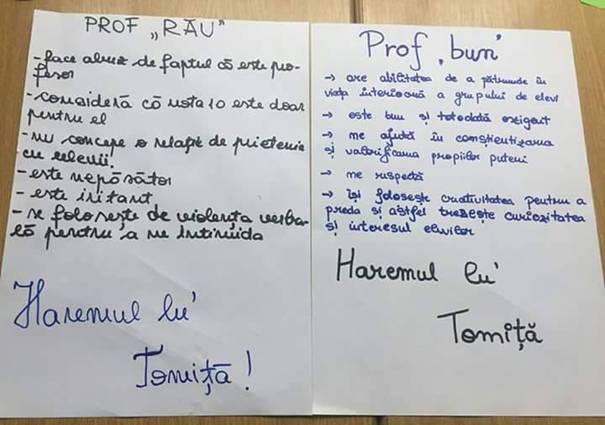 PROF „RĂU”
-face abuz de faptul că este pro-
fesor
-consideră că nota 10 este doar
pentru el
-nu concepe o relație de prietenie
cu elevii!
-este nepăsător
-este iritant
-se folosește de violența verba-
lă pentru a ne intimida
Haremul lu'
Tomiță!
Prof „bun”
→ are abilitatea de a pătrunde în
viața interioară a grupului de elevi
→ este bun și totodată exigent
→ ne ajută în conștientizarea
și valorificarea propiilor puteri
→ ne respectă
→ își folosește creativitatea pentru a
preda și astfel trezește curiozitatea
și interesul elevilor
Haremul lu'
Tomiță